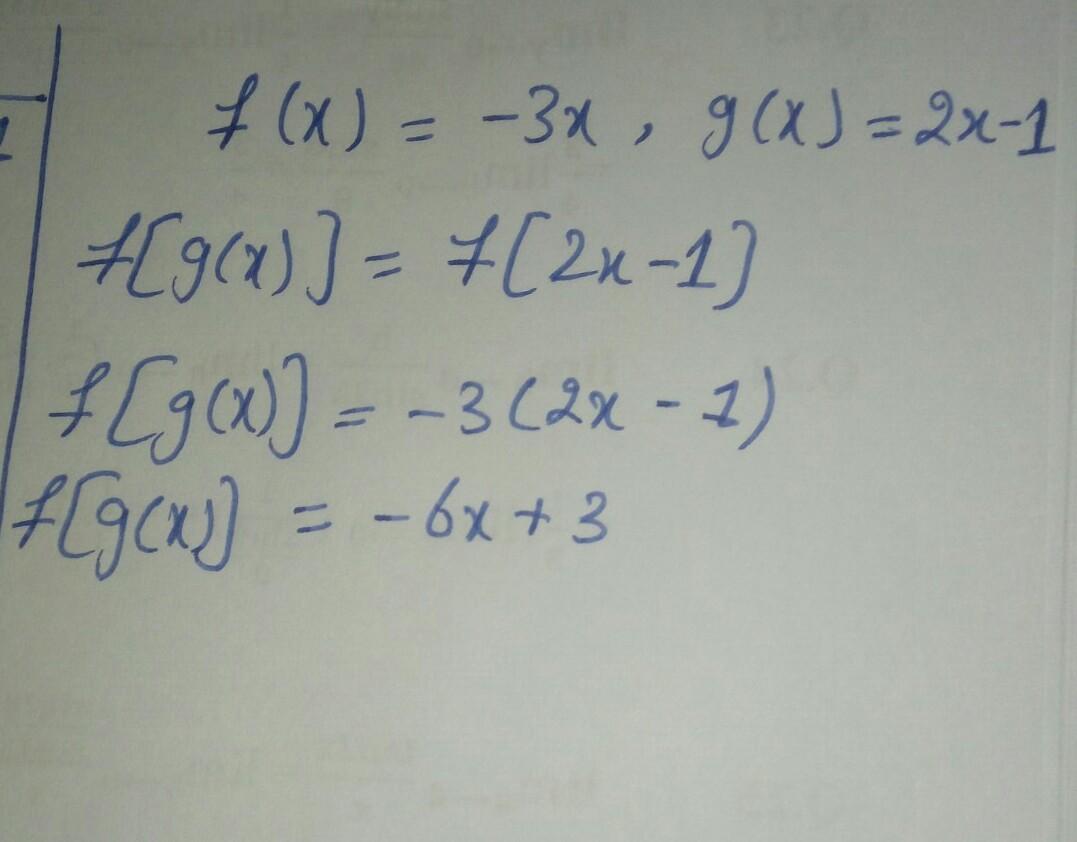 f(x) = -3x, g(x) = 2x-1
f[g(x)] = f[2x-1]
f[g(x)] = -3(2x - 1)
f[g(x)] = -6x + 3